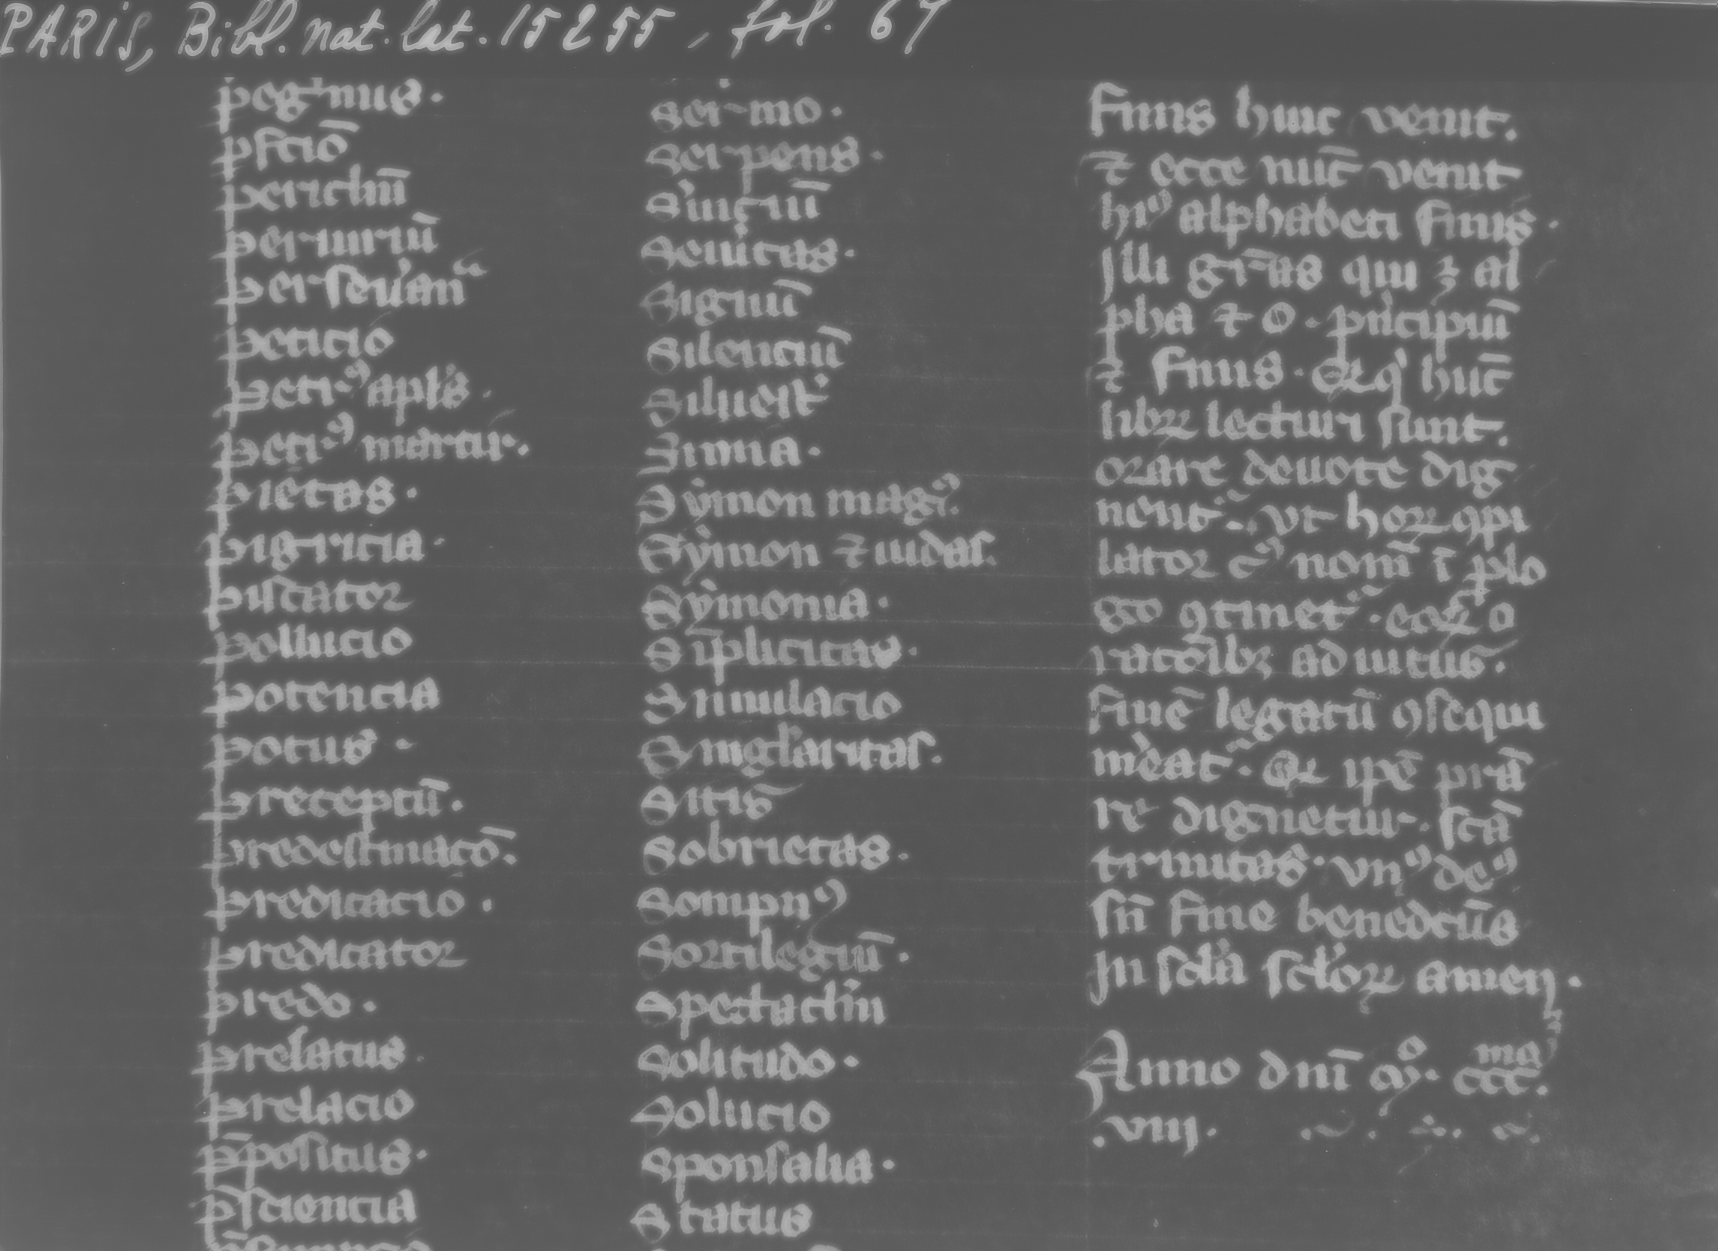 PARIS, Bibl. nat. lat. 15255, fol. 67
peg'nus.
pfctiō
periclm̄
periuriū
perseuᵃan
peticio
petrꝰ apl's.
petrꝰ martir.
pietas.
pigricia.
piscator
pollucio
potencia
potus.
preceptū.
predestinacō.
predicacio.
predicator
predo.
prelatus.
prelacio
p̄positus.
p̄sciencia
sermo.
serpens.
Senitas.
Signū
Silenciū
Siluest'
Simia.
Symon magꝰ.
Symon ⁊ iudas.
Symonia.
Sīplicitas.
Simulacio
Singl'aritas.
Sitis
Sobrietas.
Sompnꝰ
Sortilegiū.
Spectaclm̄
Solitudo.
Solucio
Sponsalia.
Status
finis huic venit.
⁊ ecce nūc venit
hiꝰ alphabeti finis.
Illi gr̄as qui ⁊ al
pha ⁊ o. pⁱncipiū
⁊ finis. Et qⁱ hūc
librꝝ lecturi sunt.
orare deuote dig
nent͛. vt horꝝ ꝯpi
lator cꝰ nom̄ ī plo
go ꝯtinet͛. eoꝝ o
racōibꝫ adiutus.
finē legatū ꝯsequi
m'eat͛. Et ip̄e prā
re dignetur. scā
trinitas. vnꝰ deꝰ
sn̄ fine benedcūs
In scl'a scl'oꝝ amen.
Anno dnī mͦ. cccᵐᵒ.
.viij.